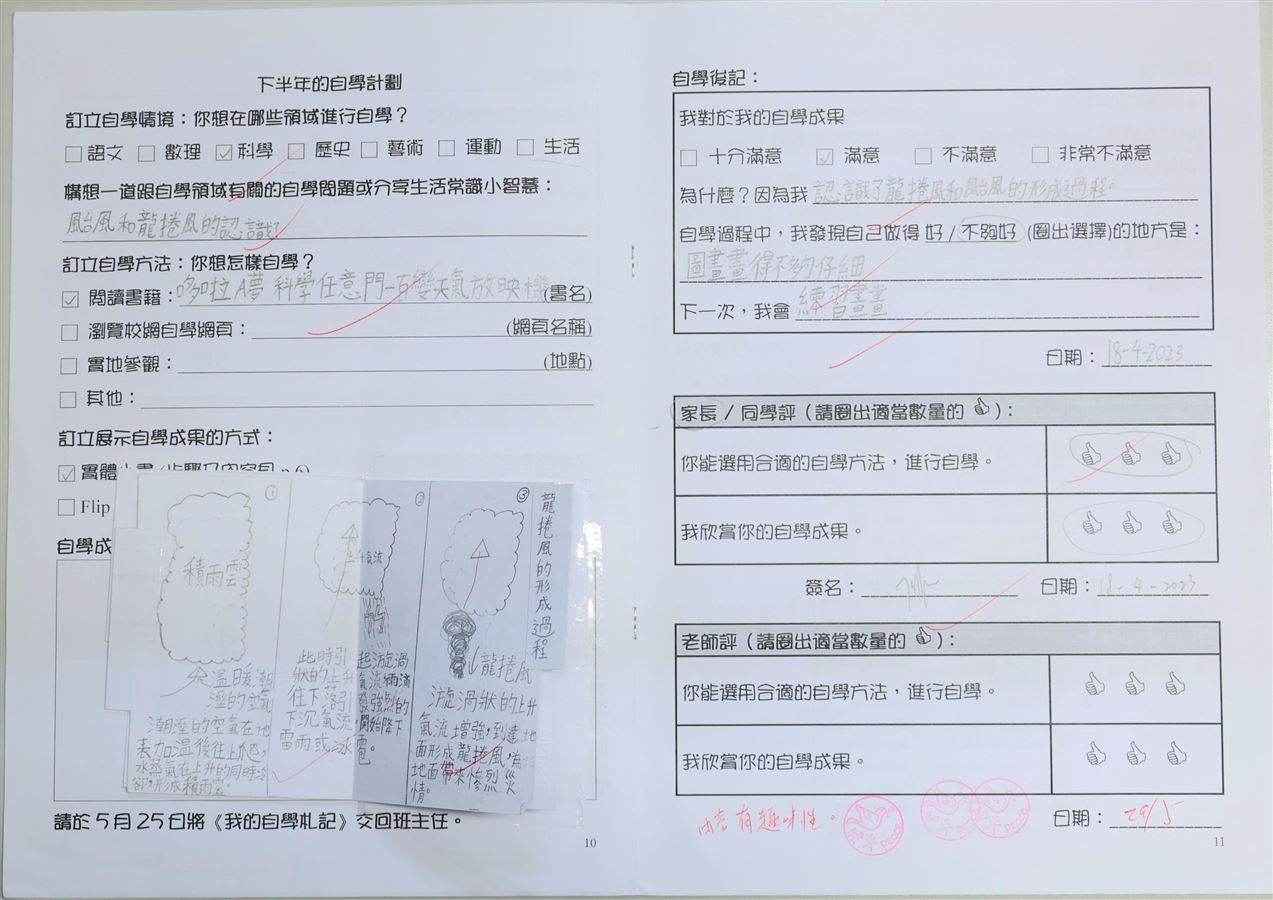 下半年的自學計劃
訂立自學情境：你想在哪些領域進行自學？
□語文 □數理 ☑科學 □歷史 □藝術 □運動 □生活
構想一道跟自學領域有關的自學問題或分享生活常識小智慧：
颱風和龍捲風的認識
訂立自學方法：你想怎樣自學？
☑ 閱讀書籍：哆啦A夢 科學任意門－百變天氣放映機(書名)
□ 瀏覽校網自學網頁： (網頁名稱)
□ 實地參觀： (地點)
□ 其他：
訂立展示自學成果的方式：
☑ 實體
□ Flip
自學成
①
積雨雲
溫暖潮
溼的空氣
潮溼的空氣在地
表加溫後往上爬，
水蒸氣在上升的同時冷
卻，形成積雨雲。
②
上升氣流
此時引起漩渦
狀的上升氣流
往下落引發強烈的
下沉氣流開始降下
雷雨或冰雹。
③
龍捲風的形成過程
龍捲風
漩渦狀的上升
氣流增強，到達地
面形成龍捲風，
地面帶來慘烈災
情。
請於5月25日將《我的自學札記》交回班主任。
10
自學後記：
我對於我的自學成果
□ 十分滿意 ☑ 滿意 □ 不滿意 □ 非常不滿意
為什麼？因為我 認識了龍捲風和颱風的形成過程。
自學過程中，我發現自己做得 好 / 不夠好 (圈出選擇)的地方是：
圖畫畫得不夠仔細
下一次，我會 練習畫畫
日期：18-4-2023
家長 / 同學評（請圈出適當數量的 👍）：
你能選用合適的自學方法，進行自學。 👍 👍 👍
我欣賞你的自學成果。 👍 👍 👍
簽名： 日期：18-4-2023
老師評（請圈出適當數量的 👍）：
你能選用合適的自學方法，進行自學。 👍 👍 👍
我欣賞你的自學成果。 👍 👍 👍
內容有趣味性。
日期：29/5
11